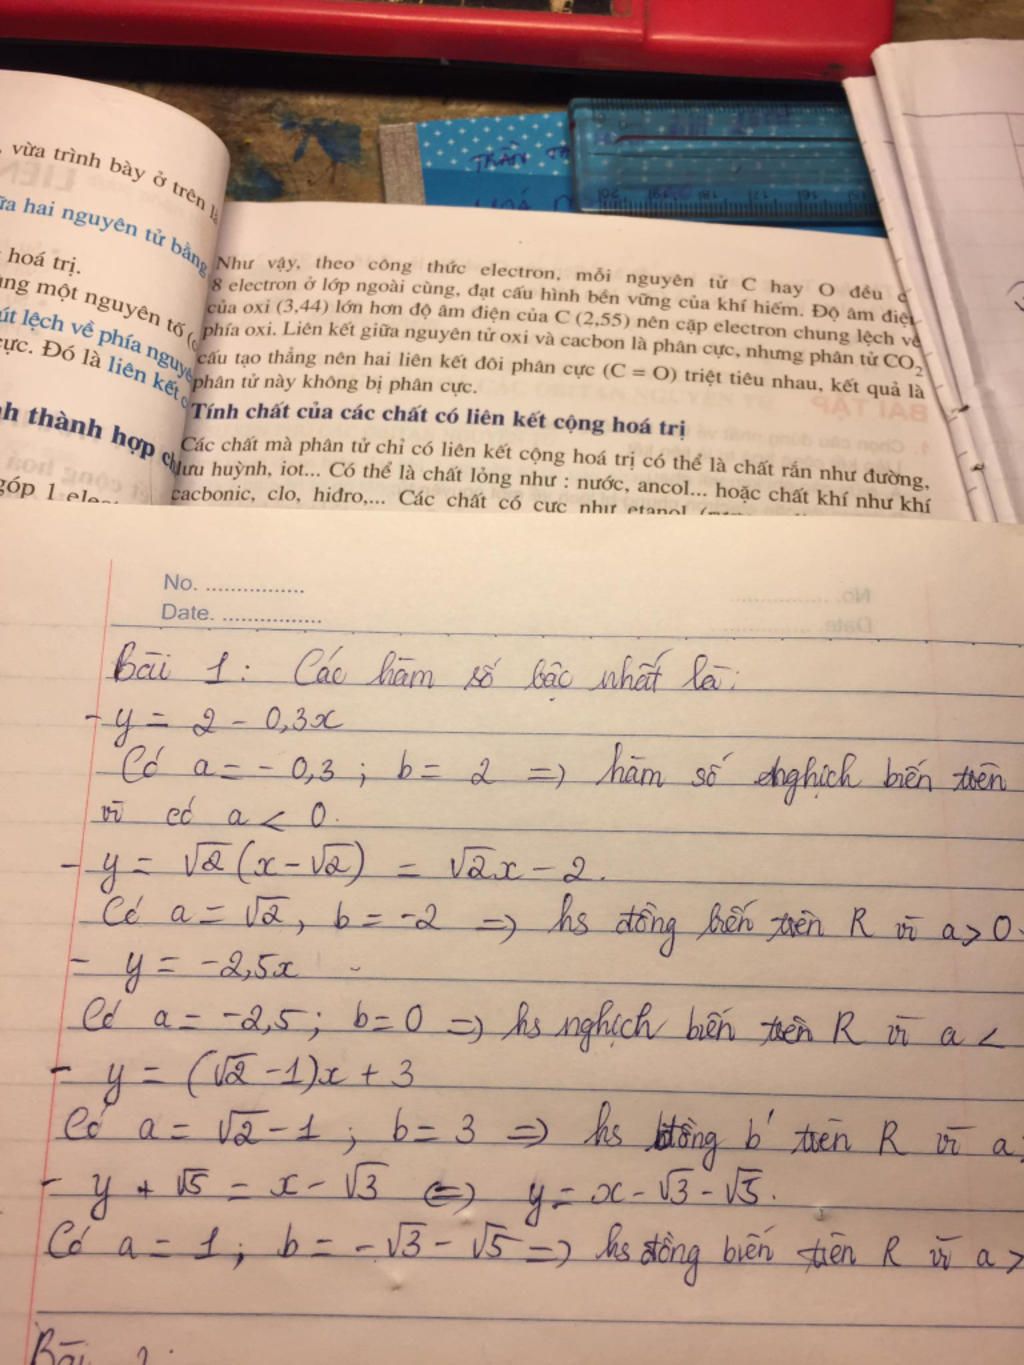 vừa trình bày ở trên
hai nguyên tử bằng
hoá trị.
một nguyên tố
lệch về phía
cực. Đó là liên kết
thành hợp
góp 1
TRẦN
Như vậy, theo công thức electron, mỗi nguyên tử C hay O đều
8 electron ở lớp ngoài cùng, đạt cấu hình bền vững của khí hiếm. Độ âm điện
của oxi (3,44) lớn hơn độ âm điện của C (2,55) nên cặp electron chung lệch về
phía oxi. Liên kết giữa nguyên tử oxi và cacbon là phân cực, nhưng phân tử CO2
cấu tạo thẳng nên hai liên kết đôi phân cực (C = O) triệt tiêu nhau, kết quả là
phân tử này không bị phân cực.
Tính chất của các chất có liên kết cộng hoá trị
Các chất mà phân tử chỉ có liên kết cộng hoá trị có thể là chất rắn như đường,
lưu huỳnh, iot... Có thể là chất lỏng như : nước, ancol... hoặc chất khí như khí
cacbonic, clo, hiđro,... Các chất có cực như etanol
No. ................
Date. ................
Bài 1: Các hàm số bậc nhất là:
- y = 2 - 0,3x
Có a = - 0,3 ; b = 2 => hàm số nghịch biến trên
vì có a < 0.
- y = √2(x-√2) = √2x - 2.
Có a = √2, b = -2 => hs đồng biến trên R vì a > 0.
- y = -2,5x
Có a = -2,5 ; b = 0 => hs nghịch biến trên R vì a <
- y = (√2 -1)x + 3
Có a = √2 - 1 ; b = 3 => hs đồng b' trên R vì a
- y + √5 = x - √3 <=> y = x - √3 - √5.
Có a = 1 ; b = -√3 - √5 => hs đồng biến trên R vì a >
Bài